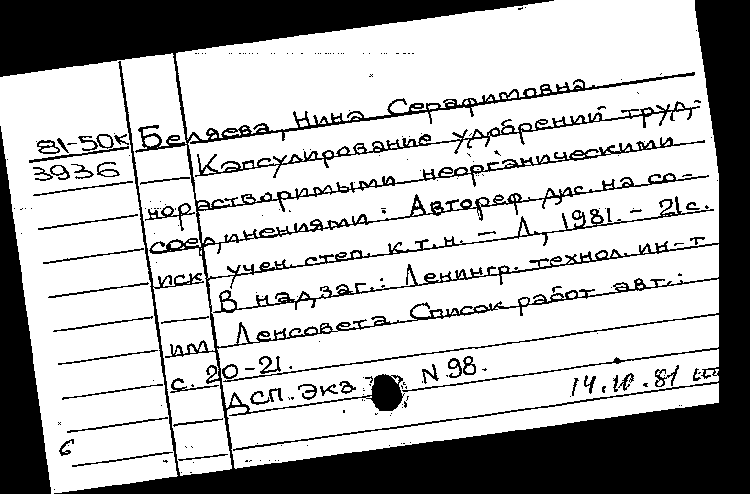 81-50к Беляева, Нина Серафимовна.
3936 Капсулирование удобрений труд-
норастворимыми неорганическими
соединениями: Автореф. дис. на со-
иск. учен. степ. к.т.н. – Л., 1981. – 21с.
В надзаг.: Ленингр. технол. ин-т
им. Ленсовета. Список работ авт.:
с. 20-21.
ДСП. Экз N 98.
14.10.81
6